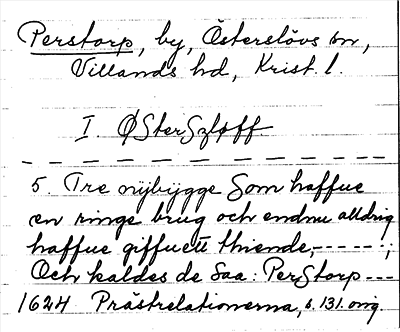 Perstorp, by, Österslövs sn,
Villands hd, Krist. l.
I. ØSterSzløff
5. Tre nÿbÿgge Som haffue
en ringe brug och endnu alldrig
haffue giffuett thiende, - - - - - ;
Och kaldes de Saa: PerStorp - - -
1624 Prästrelationerna, s. 131. omg.